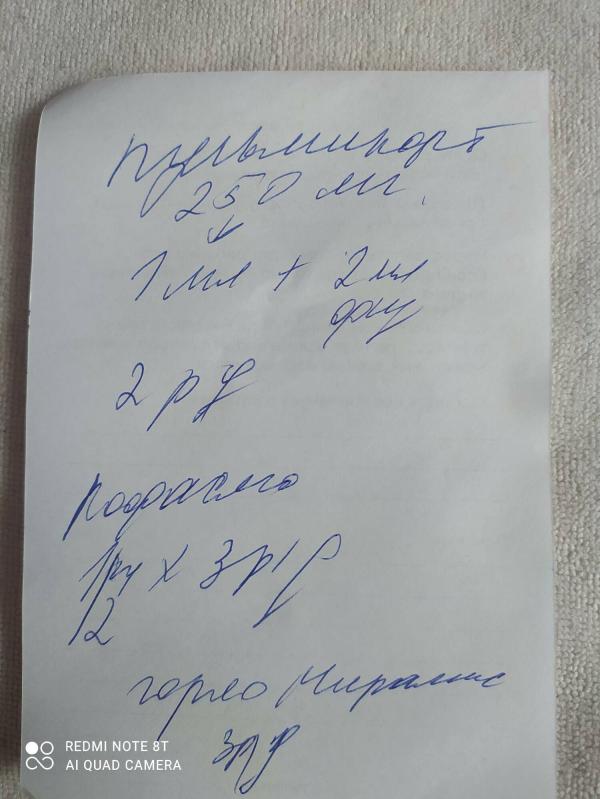 Пульмикорт
250 мг.
1 мл + 2 мл
физ
2 р/д
1/2 х 3 р/д
горло Мирамис
3 р д
REDMI NOTE 8T
AI QUAD CAMERA